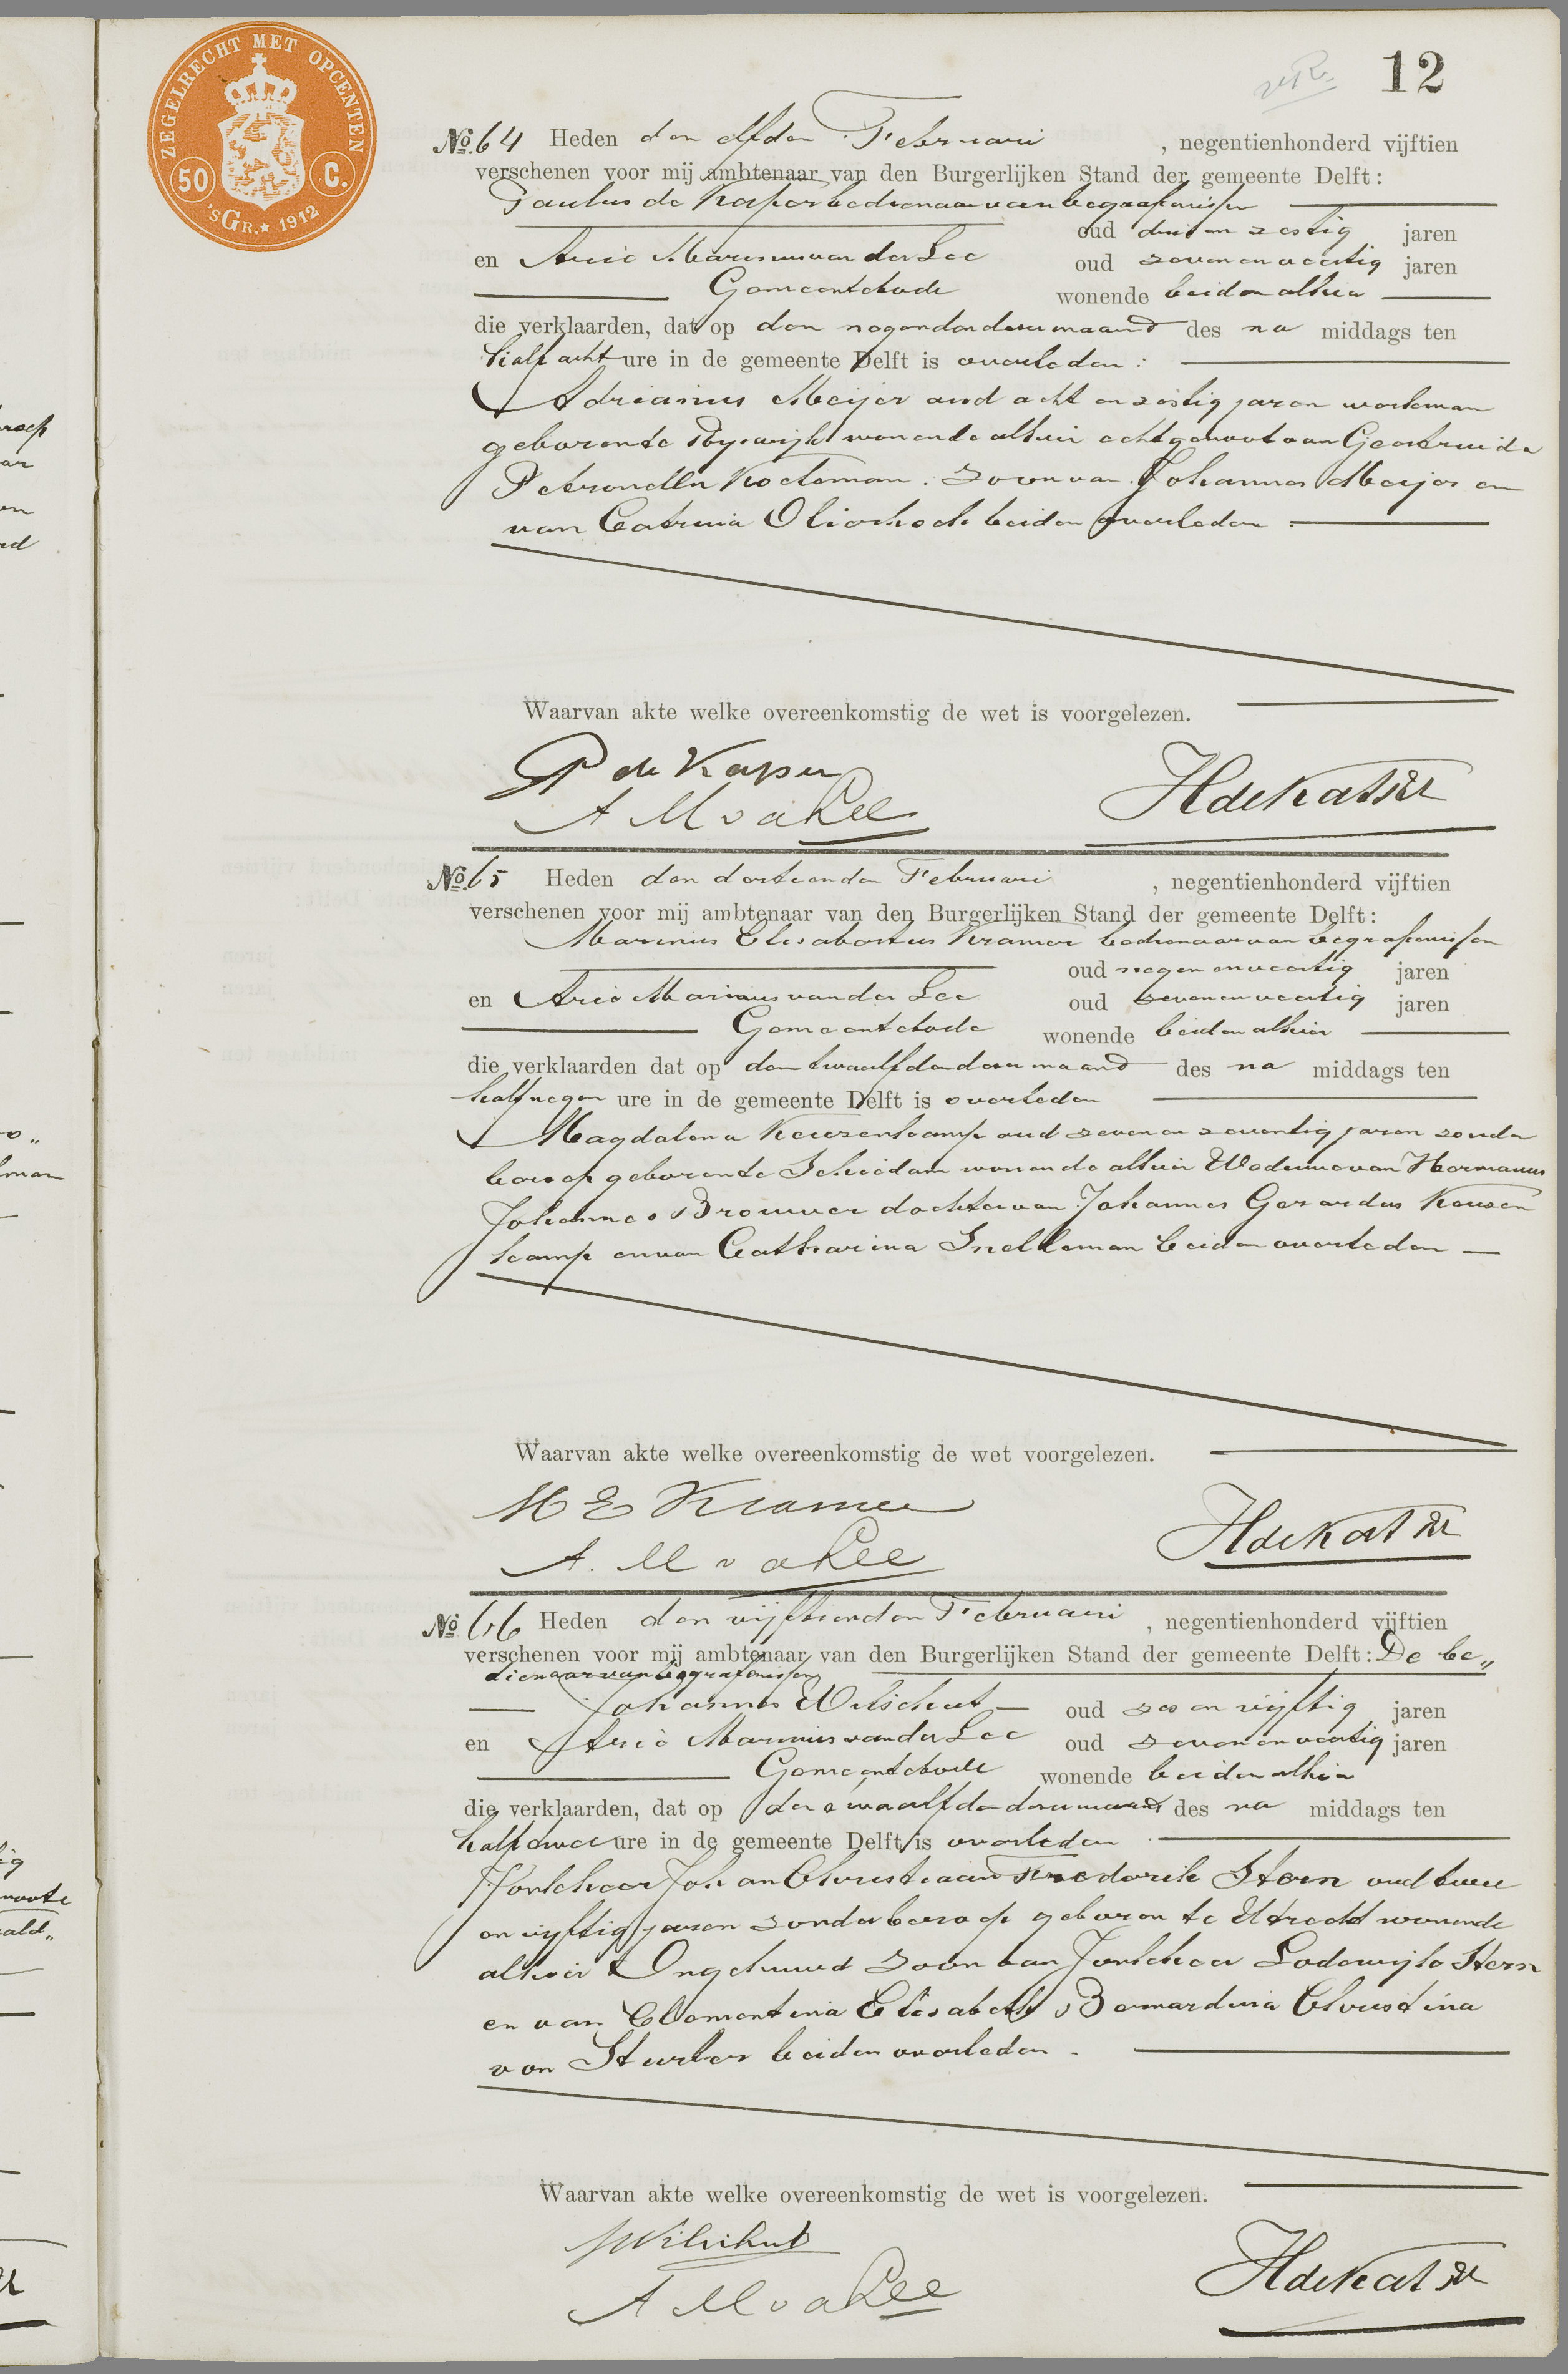 ZEGELRECHT MET OPCENTEN
50 C.
'sGR.★ 1912
12
No. 64 Heden den elfden Februari , negentienhonderd vijftien
verschenen voor mij ambtenaar van den Burgerlijken Stand der gemeente Delft:
Paulus de Kaper bedienaar van begrafenissen
oud drie en zestig jaren
en Arie Marinus van der Lee oud zeven en veertig jaren
Gemeentebode wonende beiden alhier
die verklaarden, dat op den negenden dezer maand des na middags ten
half acht ure in de gemeente Delft is overleden:
Adrianus Meijer oud acht en zestig jaren werkman
geboren te Rijswijk wonende alhier echtgenoot van Geertruida
Petronella Koeleman. Zoon van Johannes Meijer en
van Catrina Olierhoek beiden overleden.
Waarvan akte welke overeenkomstig de wet is voorgelezen.
P de Kaper
A M v d Lee
HdeKat
No. 65 Heden den dertienden Februari , negentienhonderd vijftien
verschenen voor mij ambtenaar van den Burgerlijken Stand der gemeente Delft:
Marinus Elisabertus Kramer bedienaar van begrafenissen
oud negen en veertig jaren
en Arie Marinus van der Lee oud zeven en veertig jaren
Gemeentebode wonende beiden alhier
die verklaarden dat op den twaalfden dezer maand des na middags ten
half negen ure in de gemeente Delft is overleden
Magdalena Keuzenkamp oud zeven en zeventig jaren zonder
beroep geboren te Schiedam wonende alhier Weduwe van Hermanus
Johannes Brouwer dochter van Johannes Gerardus Keuzen
kamp en van Catharina Snelleman beiden overleden
Waarvan akte welke overeenkomstig de wet voorgelezen.
M E Kramer
A. M v d Lee
HdeKat
No. 66 Heden den vijftienden Februari , negentienhonderd vijftien
verschenen voor mij ambtenaar van den Burgerlijken Stand der gemeente Delft: De be„
dienaar van begrafenissen
Johannes Wilschut oud zes en vijftig jaren
en Arie Marinus van der Lee oud zeven en veertig jaren
Gemeentebode wonende beiden alhier
die verklaarden, dat op den twaalfden dezer maand des na middags ten
half twee ure in de gemeente Delft is overleden
Jonkheer Johan Christiaan Frederik Stern oud twee
en vijftig jaren zonder beroep geboren te Utrecht wonende
alhier Ongehuwd Zoon van Jonkheer Lodewijk Stern
en van Clementina Elisabeth Bernardina Christina
von Sturler beiden overleden.
Waarvan akte welke overeenkomstig de wet is voorgelezen.
JWilschut
A M v d Lee
HdeKat